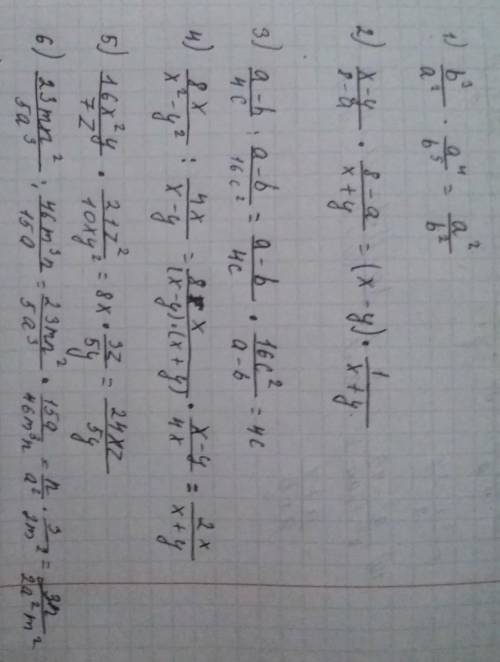 1) b³/a² · a⁴/b⁵ = a²/b²
2) x-y/8-a · 8-a/x+y = (x-y) · 1/x+y
3) a-b/4c : a-b/16c² = a-b/4c · 16c²/a-b = 4c
4) 8x/x²-y² : 4x/x-y = 8x/(x-y)·(x+y) · x-y/4x = 2x/x+y
5) 16x²y/7z · 21z²/10xy² = 8x · 3z/5y = 24xz/5y
6) 23mn²/5a³ : 46m³n/15a = 23mn²/5a³ · 15a/46m³n = n/a² · 3/2m² = 3n/2a²m²